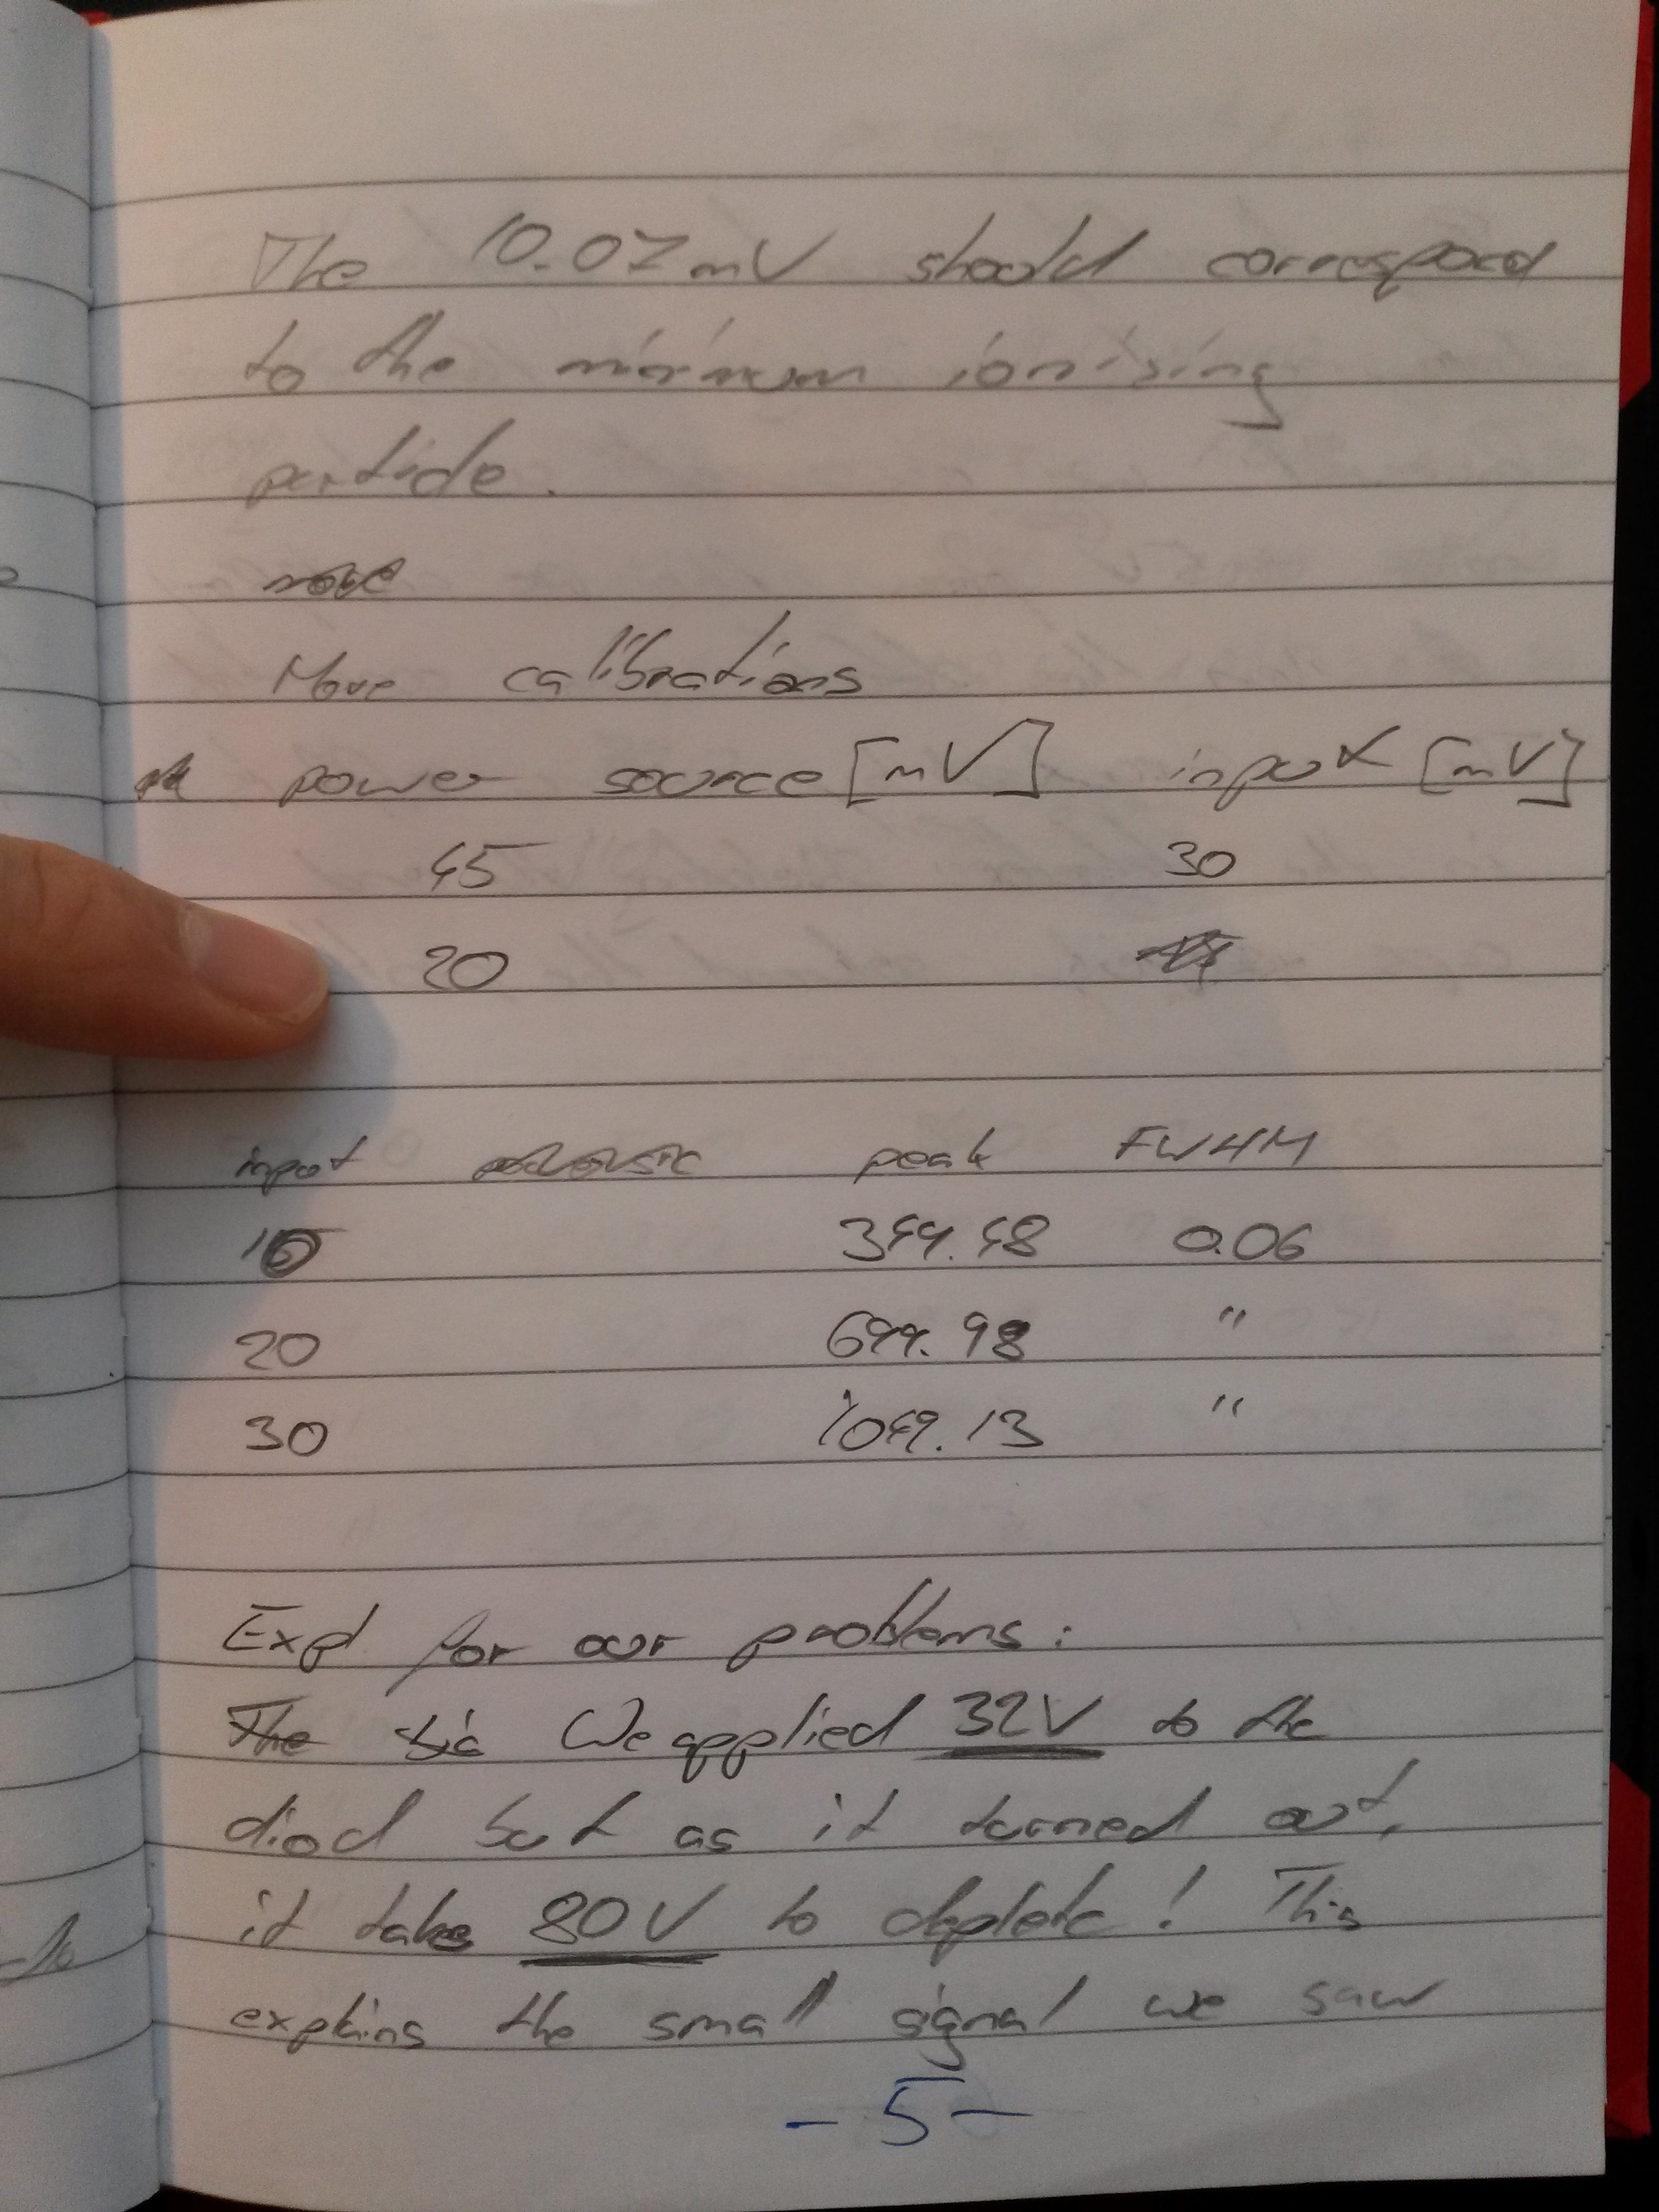 The 10.07 mV should correspond
to the minimum ionising
particle.
More calibrations
power source [mV] input [mV]
45 30
20
input peak FWHM
10 349.48 0.06
20 699.98 "
30 1049.13 "
Expl for our problems:
The We applied 32V to the
diod but as it turned out,
it takes 80V to deplete! This
explains the small signal we saw
- 5 -